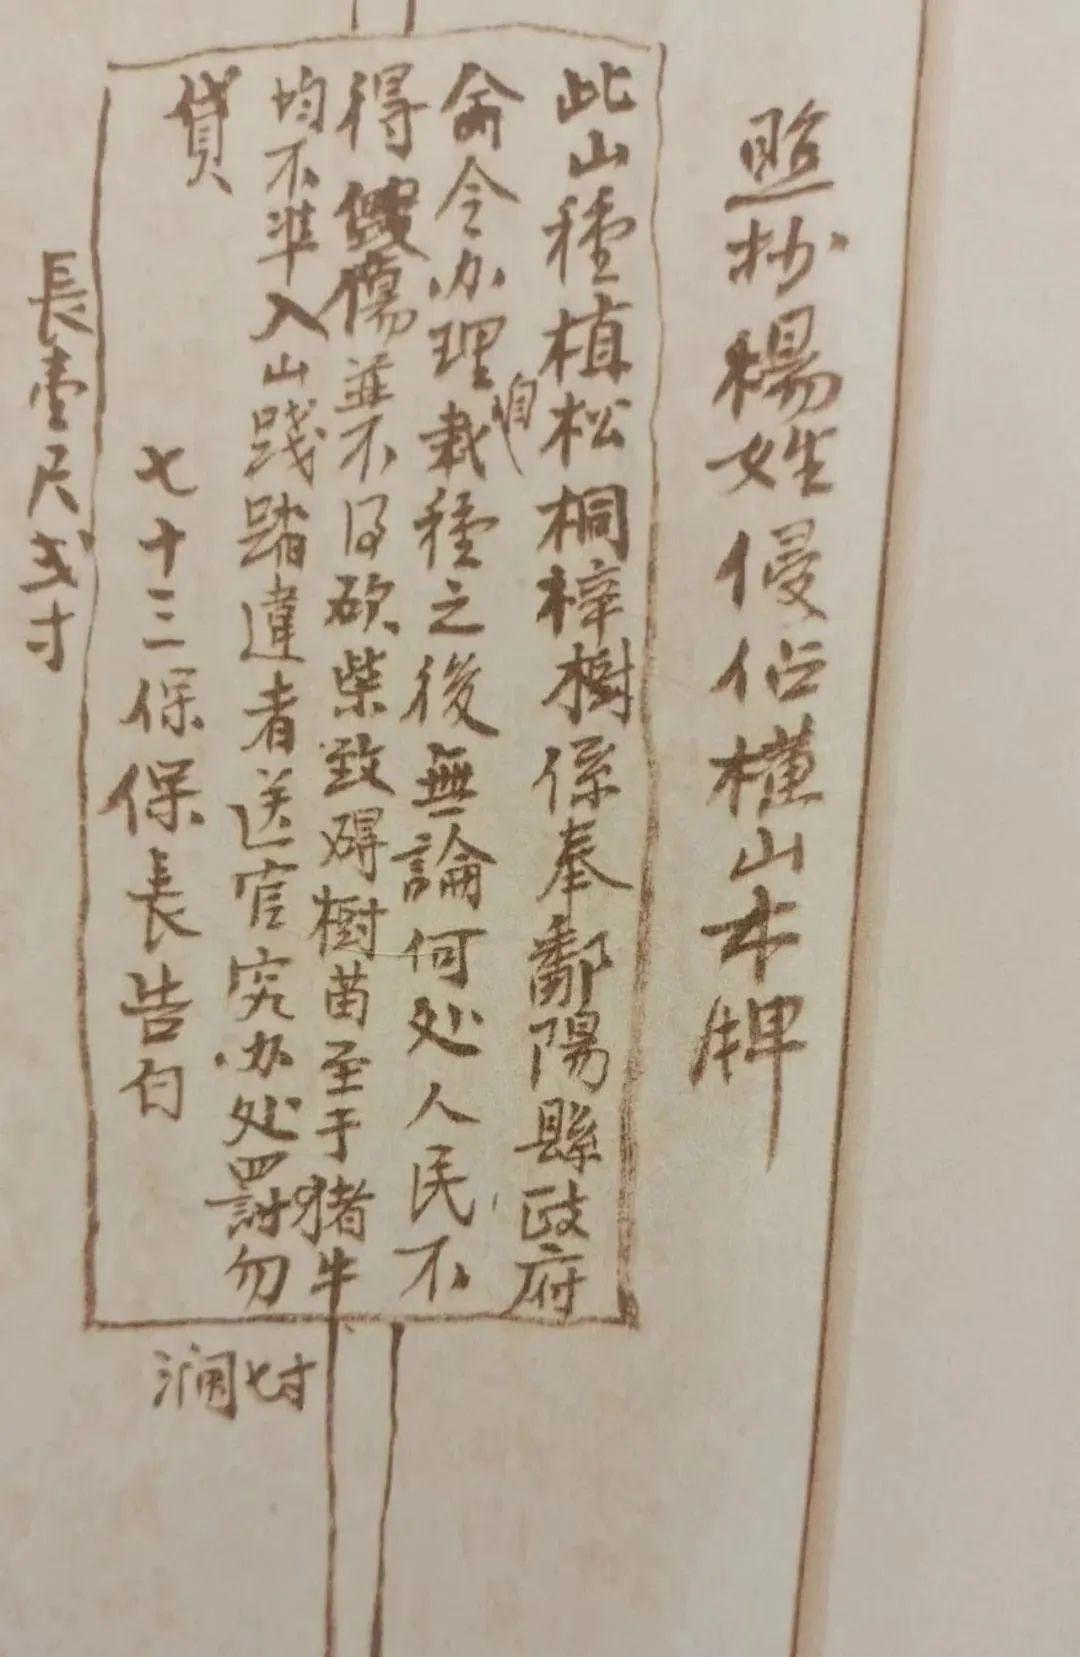 照抄楊姓侵佔横山木牌
此山種植松桐梓樹係奉鄱陽縣政府
侖令办理自栽種之後無論何处人民不
得 傷並不得砍柴致碍樹苗至于猪牛
均不準入山踐踏違者送官究办处罰勿
貸
七十三保保長告白
長壹尺弍寸
濶七寸